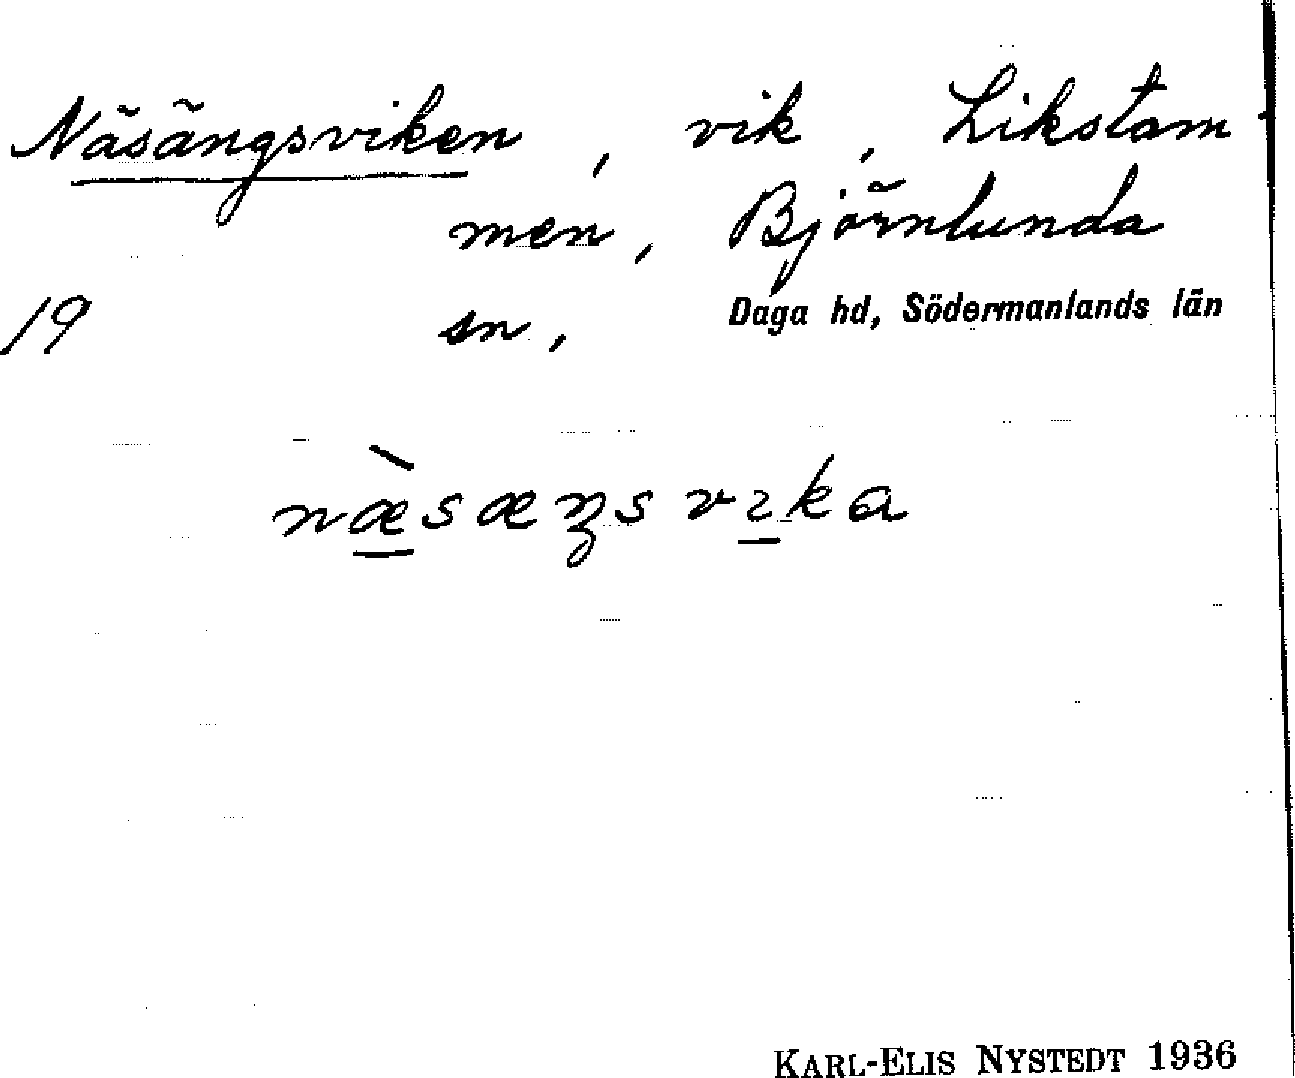 Näsängsviken, vik, Likstam
men, Björnlunda
19 sn, Daga hd, Södermanlands län
næ̀sæŋs vıka
KARL-ELIS NYSTEDT 1936